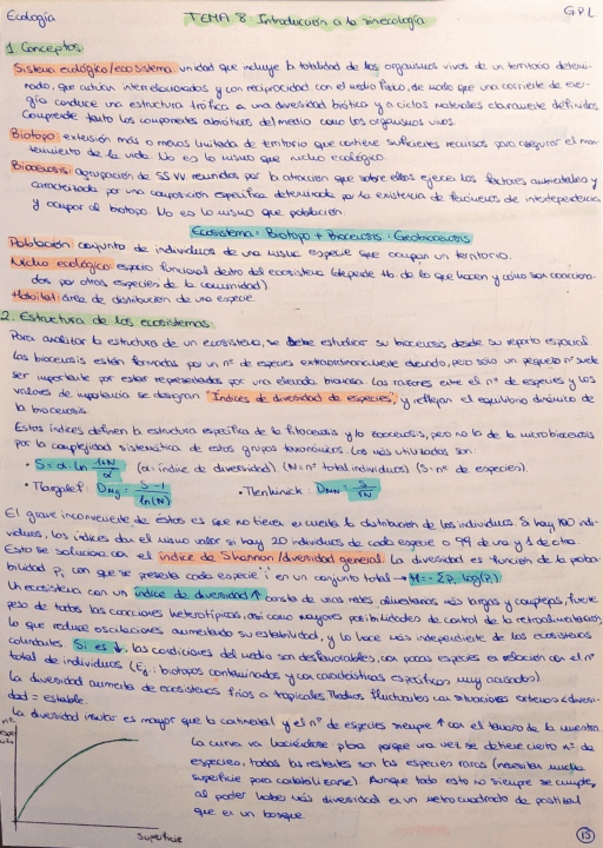 Ecología
TEMA 8: Introducción a la sinecología
GPL
1. Conceptos:
Sistema ecológico/ecosistema: unidad que incluye la totalidad de los organismos vivos de un territorio determi-
nado, que actúan interrelacionados y con reciprocidad con el medio físico, de modo que una corriente de ener-
gía conduce una estructura trófica a una diversidad biótica y a ciclos materiales claramente definidos.
Comprende tanto los componentes abióticos del medio como los organismos vivos.
Biotopo: extensión más o menos limitada de territorio que contiene suficientes recursos para asegurar el man-
tenimiento de la vida. No es lo mismo que nicho ecológico.
Biocenosis: agrupación de SSVV reunidos por la atracción que sobre ellos ejercen los factores ambientales y
caracterizada por una composición específica determinada por la existencia de fenómenos de interdependencia
y ocupar al biotopo. No es lo mismo que población.
Ecosistema = Biotopo + Biocenosis = Geobiocenosis
Población: conjunto de individuos de una misma especie que ocupan un territorio.
Nicho ecológico: espacio funcional dentro del ecosistema (depende tb. de lo que hacen y cómo son condiciona-
dos por otras especies de la comunidad).
Hábitat: área de distribución de una especie.
2. Estructura de los ecosistemas:
Para analizar la estructura de un ecosistema, se debe estudiar su biocenosis desde su reparto espacial.
Las biocenosis están formadas por un nº de especies extraordinariamente elevado, pero sólo un pequeño nº suele
ser importante por estar representadas por una elevada biomasa. Las razones entre el nº de especies y los
valores de importancia se designan "Índices de diversidad de especies", y reflejan el equilibrio dinámico de
la biocenosis.
Estos índices definen la estructura específica de la fitocenosis y la zoocenosis, pero no la de la microbiocenosis
por la complejidad sistemática de estos grupos taxonómicos. Los más utilizados son:
• S = α · ln (α: índice de diversidad) (N = nº total individuos) (S = nº de especies).
• Margalef: DMg = S-1 / ln(N) • Menhinick: DMN = S / √N
El grave inconveniente de éstos es que no tienen en cuenta la distribución de los individuos. Si hay 100 indi-
viduos, los índices dan el mismo valor si hay 20 individuos de cada especie o 99 de una y 1 de otra.
Esto se soluciona con el índice de Shannon/diversidad general. La diversidad es función de la proba-
bilidad Pi con que se presenta cada especie "i" en un conjunto total → H = - Σ Pi · log(Pi)
Un ecosistema con un índice de diversidad ↑ consta de unas redes alimentarias más largas y complejas, fuerte
peso de todas las coacciones heterotípicas, así como mayores posibilidades de control de la retroalimentación,
lo que reduce oscilaciones aumentado su estabilidad, y lo hace más independiente de los ecosistemas
colindantes. Si es ↓, las condiciones del medio son desfavorables, con pocas especies en relación con el nº
total de individuos (Ej: biotopos contaminados y con características específicas muy acusadas).
La diversidad aumenta de ecosistemas fríos a tropicales. Medios fluctuantes con situaciones extremas < diversi-
dad = estable.
La diversidad insular es mayor que la continental y el nº de especies siempre ↑ con el tamaño de la muestra.
La curva va haciéndose plana porque una vez se obtiene cierto nº de
especies, todas las restantes son las especies raras (necesitan mucha
superficie para contabilizarse). Aunque todo esto no siempre se cumple,
al poder haber más diversidad en un metro cuadrado de pastizal
que en un bosque.
nº
Superficie
15